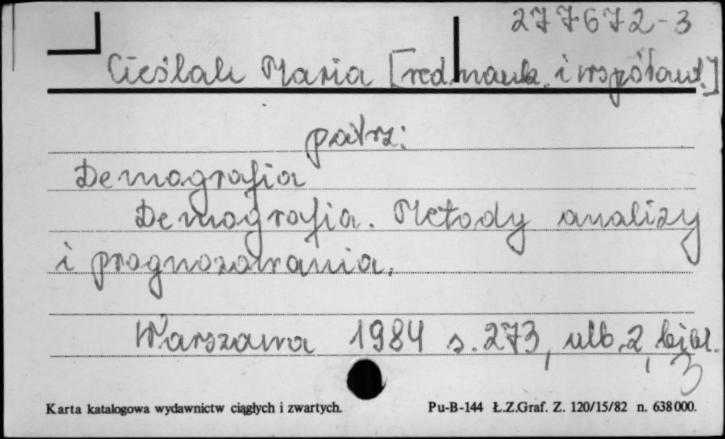 277672-3
Cieślak Maria [red. nauk. i współaut.]
patrz:
Demografia
Demografia. Metody analizy
i prognozowania.
Warszawa 1984 s. 273, nlb. 2,
3
Karta katalogowa wydawnictw ciągłych i zwartych.
Pu-B-144 Ł.Z.Graf. Z. 120/15/82 n. 638000.